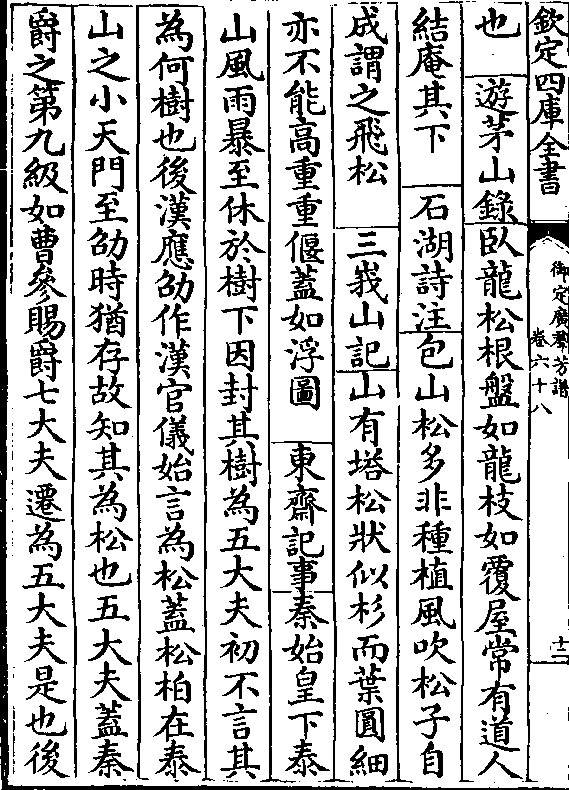 欽定四庫全書
御定廣羣芳譜
卷六十八
十二
也 遊茅山錄臥龍松根盤如龍枝如覆屋常有道人
結庵其下 石湖詩注包山松多非種植風吹松子自
成謂之飛松 三峩山記山有塔松狀似杉而葉圓細
亦不能高重重偃蓋如浮圖 東齋記事秦始皇下泰
山風雨暴至休於樹下因封其樹為五大夫初不言其
為何樹也後漢應劭作漢官儀始言為松蓋松柏在泰
山之小天門至劭時猶存故知其為松也五大夫蓋秦
爵之第九級如曹參賜爵七大夫遷為五大夫是也後